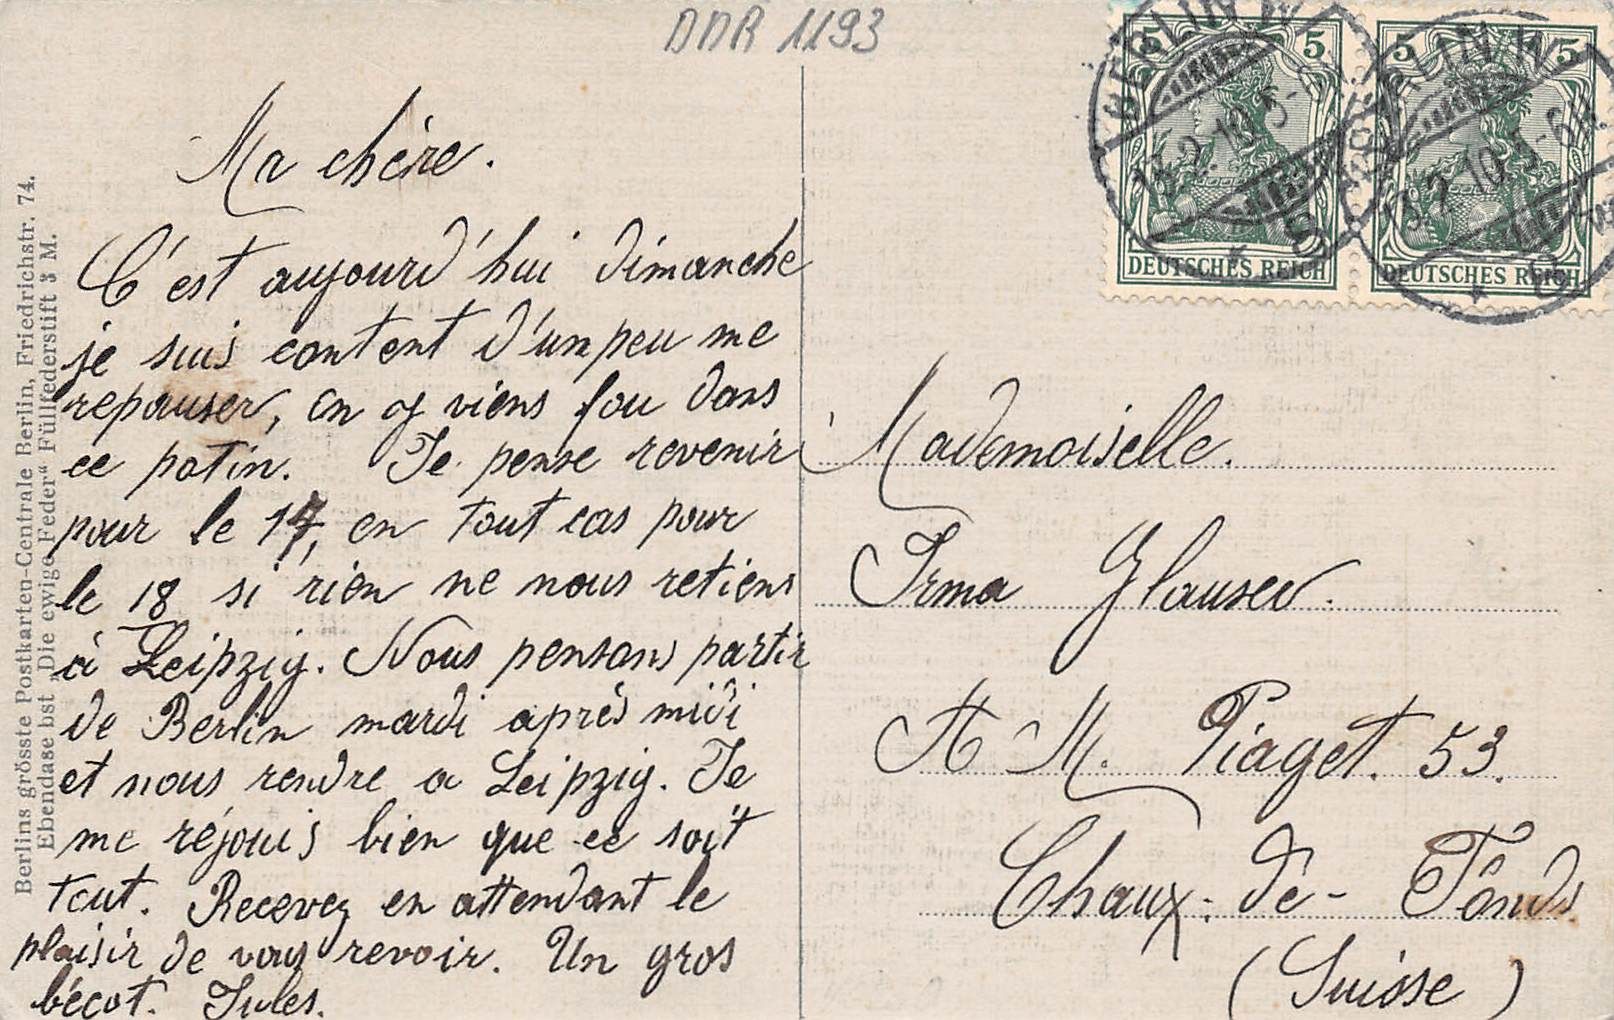 DDR 1193
Ma chère.
C'est aujourd'hui dimanche
je suis content d'un peu me
repauser, on y viens fou dans
ce patin. Je pense revenir
pour le 17, en tout cas pour
le 18 si rien ne nous retiens
à Leipzig. Nous pensons partir
de Berlin mardi après midi
et nous rendre a Leipzig. Je
me réjouis bien que ce soit
tout. Recevez en attendant le
plaisir de vous revoir. Un gros
bécot. Jules.
Berlins grösste Postkarten-Centrale Berlin, Friedrichstr. 74.
Ebendaselbst „Die ewige Feder“ Füllfederstift 3 M.
5 5
DEUTSCHES REICH
5 5
DEUTSCHES REICH
BERLIN W
13.2.10.5-
BERLIN W
13.2.10.5-6N.
Mademoiselle.
Irma Glauser.
A M. Piaget. 53.
Chaux-de-Fonds
(Suisse)